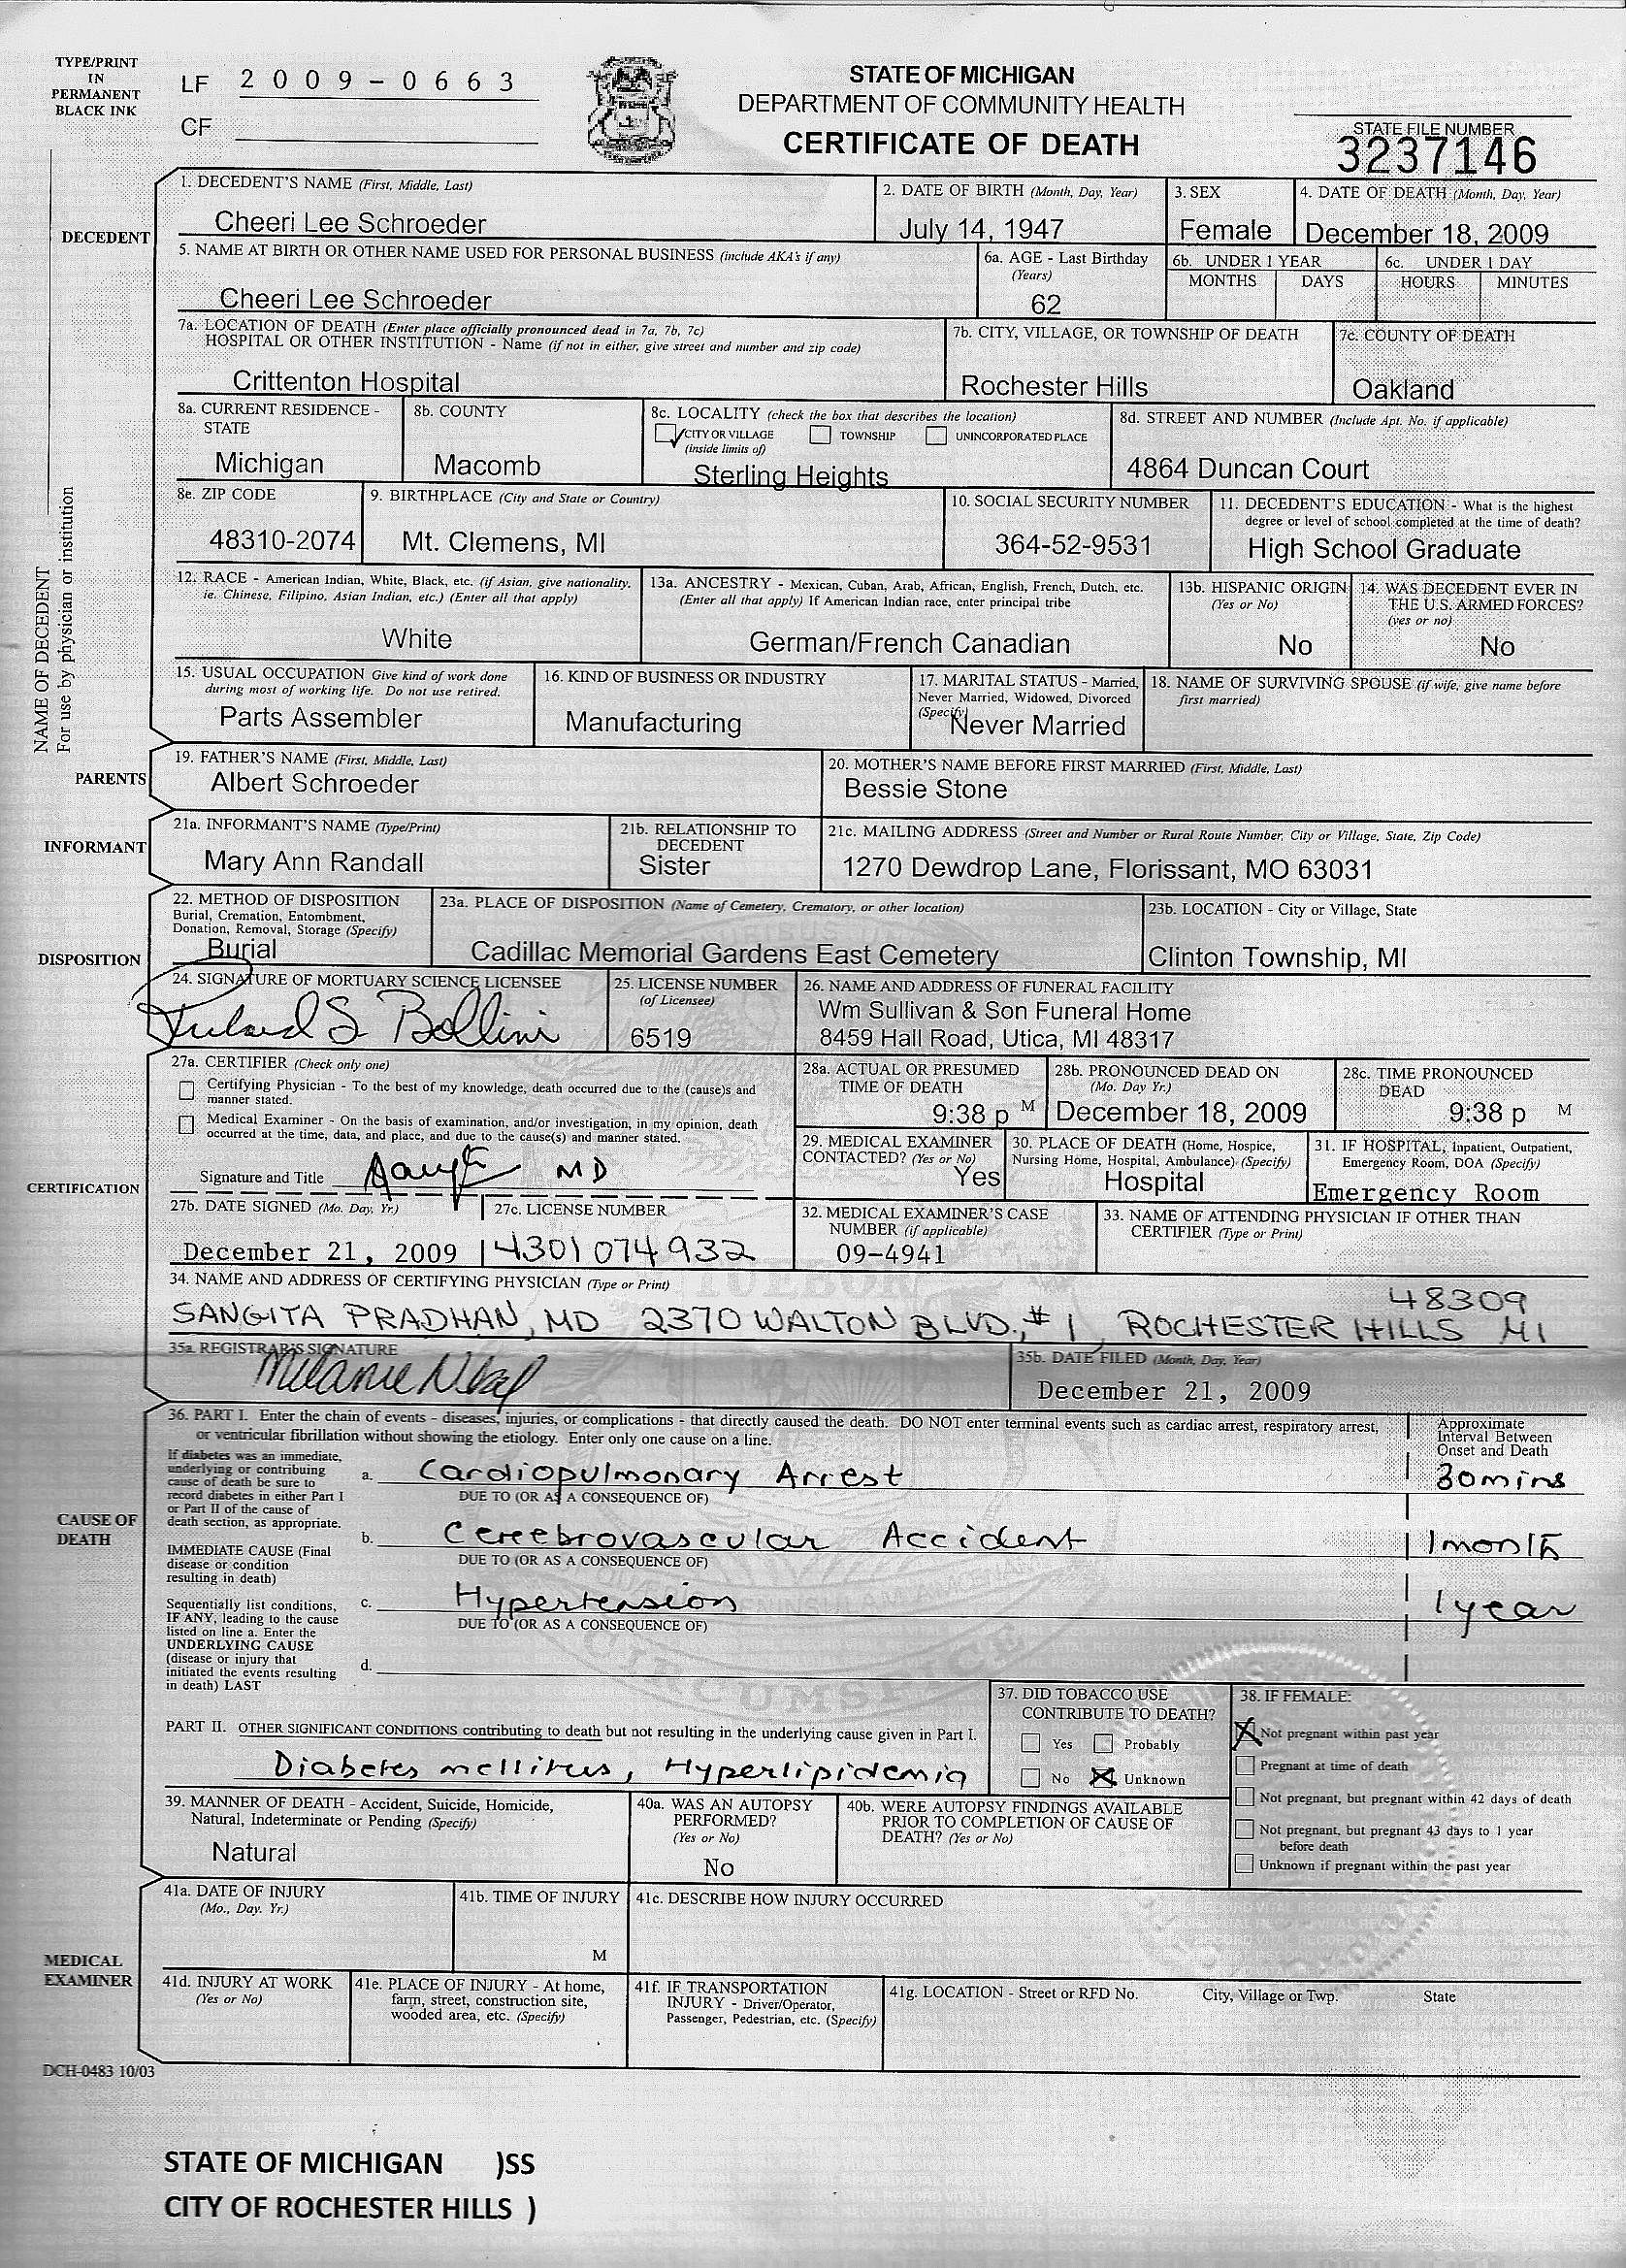 TYPE/PRINT
IN
PERMANENT
BLACK INK
LF 2009-0663
CF
STATE OF MICHIGAN
DEPARTMENT OF COMMUNITY HEALTH
CERTIFICATE OF DEATH
STATE FILE NUMBER
3237146
NAME OF DECEDENT
For use by physician or institution
DECEDENT
1. DECEDENT'S NAME (First, Middle, Last)
Cheeri Lee Schroeder
2. DATE OF BIRTH (Month, Day, Year)
July 14, 1947
3. SEX
Female
4. DATE OF DEATH (Month, Day, Year)
December 18, 2009
5. NAME AT BIRTH OR OTHER NAME USED FOR PERSONAL BUSINESS (include AKA's if any)
Cheeri Lee Schroeder
6a. AGE - Last Birthday
(Years)
62
6b. UNDER 1 YEAR
MONTHS DAYS
6c. UNDER 1 DAY
HOURS MINUTES
7a. LOCATION OF DEATH (Enter place officially pronounced dead in 7a, 7b, 7c)
HOSPITAL OR OTHER INSTITUTION - Name (if not in either, give street and number and zip code)
Crittenton Hospital
7b. CITY, VILLAGE, OR TOWNSHIP OF DEATH
Rochester Hills
7c. COUNTY OF DEATH
Oakland
8a. CURRENT RESIDENCE -
STATE
Michigan
8b. COUNTY
Macomb
8c. LOCALITY (check the box that describes the location)
CITY OR VILLAGE TOWNSHIP UNINCORPORATED PLACE
(inside limits of)
Sterling Heights
8d. STREET AND NUMBER (Include Apt. No. if applicable)
4864 Duncan Court
8e. ZIP CODE
48310-2074
9. BIRTHPLACE (City and State or Country)
Mt. Clemens, MI
10. SOCIAL SECURITY NUMBER
364-52-9531
11. DECEDENT'S EDUCATION - What is the highest
degree or level of school completed at the time of death?
High School Graduate
12. RACE - American Indian, White, Black, etc. (if Asian, give nationality,
ie. Chinese, Filipino, Asian Indian, etc.) (Enter all that apply)
White
13a. ANCESTRY - Mexican, Cuban, Arab, African, English, French, Dutch, etc.
(Enter all that apply) If American Indian race, enter principal tribe
German/French Canadian
13b. HISPANIC ORIGIN
(Yes or No)
No
14. WAS DECEDENT EVER IN
THE U.S. ARMED FORCES?
(yes or no)
No
15. USUAL OCCUPATION Give kind of work done
during most of working life. Do not use retired.
Parts Assembler
16. KIND OF BUSINESS OR INDUSTRY
Manufacturing
17. MARITAL STATUS - Married,
Never Married, Widowed, Divorced
(Specify)
Never Married
18. NAME OF SURVIVING SPOUSE (if wife, give name before
first married)
PARENTS
19. FATHER'S NAME (First, Middle, Last)
Albert Schroeder
20. MOTHER'S NAME BEFORE FIRST MARRIED (First, Middle, Last)
Bessie Stone
INFORMANT
21a. INFORMANT'S NAME (Type/Print)
Mary Ann Randall
21b. RELATIONSHIP TO
DECEDENT
Sister
21c. MAILING ADDRESS (Street and Number or Rural Route Number, City or Village, State, Zip Code)
1270 Dewdrop Lane, Florissant, MO 63031
DISPOSITION
22. METHOD OF DISPOSITION
Burial, Cremation, Entombment,
Donation, Removal, Storage (Specify)
Burial
23a. PLACE OF DISPOSITION (Name of Cemetery, Crematory, or other location)
Cadillac Memorial Gardens East Cemetery
23b. LOCATION - City or Village, State
Clinton Township, MI
24. SIGNATURE OF MORTUARY SCIENCE LICENSEE
Richard S Bollini
25. LICENSE NUMBER
(of Licensee)
6519
26. NAME AND ADDRESS OF FUNERAL FACILITY
Wm Sullivan & Son Funeral Home
8459 Hall Road, Utica, MI 48317
CERTIFICATION
27a. CERTIFIER (Check only one)
Certifying Physician - To the best of my knowledge, death occurred due to the (cause)s and
manner stated.
Medical Examiner - On the basis of examination, and/or investigation, in my opinion, death
occurred at the time, data, and place, and due to the cause(s) and manner stated.
Signature and Title MD
27b. DATE SIGNED (Mo. Day, Yr.)
December 21, 2009
27c. LICENSE NUMBER
4301074932
28a. ACTUAL OR PRESUMED
TIME OF DEATH
9:38 p M
28b. PRONOUNCED DEAD ON
(Mo. Day Yr.)
December 18, 2009
28c. TIME PRONOUNCED
DEAD
9:38 p M
29. MEDICAL EXAMINER
CONTACTED? (Yes or No)
Yes
30. PLACE OF DEATH (Home, Hospice,
Nursing Home, Hospital, Ambulance) (Specify)
Hospital
31. IF HOSPITAL, Inpatient, Outpatient,
Emergency Room, DOA (Specify)
Emergency Room
32. MEDICAL EXAMINER'S CASE
NUMBER (if applicable)
09-4941
33. NAME OF ATTENDING PHYSICIAN IF OTHER THAN
CERTIFIER (Type or Print)
34. NAME AND ADDRESS OF CERTIFYING PHYSICIAN (Type or Print)
48309
SANGITA PRADHAN, MD 2370 WALTON BLVD., #1, ROCHESTER HILLS MI
35a. REGISTRAR'S SIGNATURE
Melanie
35b. DATE FILED (Month, Day, Year)
December 21, 2009
CAUSE OF
DEATH
36. PART I. Enter the chain of events - diseases, injuries, or complications - that directly caused the death. DO NOT enter terminal events such as cardiac arrest, respiratory arrest,
or ventricular fibrillation without showing the etiology. Enter only one cause on a line.
Approximate
Interval Between
Onset and Death
If diabetes was an immediate,
underlying or contributing
cause of death be sure to
record diabetes in either Part I
or Part II of the cause of
death section, as appropriate.
IMMEDIATE CAUSE (Final
disease or condition
resulting in death)
Sequentially list conditions,
IF ANY, leading to the cause
listed on line a. Enter the
UNDERLYING CAUSE
(disease or injury that
initiated the events resulting
in death) LAST
a. Cardiopulmonary Arrest 30mins
DUE TO (OR AS A CONSEQUENCE OF)
b. Cerebrovascular Accident 1month
DUE TO (OR AS A CONSEQUENCE OF)
c. Hypertension 1year
DUE TO (OR AS A CONSEQUENCE OF)
d.
PART II. OTHER SIGNIFICANT CONDITIONS contributing to death but not resulting in the underlying cause given in Part I.
Diabetes mellitus, Hyperlipidemia
37. DID TOBACCO USE
CONTRIBUTE TO DEATH?
Yes Probably
No Unknown
38. IF FEMALE:
Not pregnant within past year
Pregnant at time of death
Not pregnant, but pregnant within 42 days of death
Not pregnant, but pregnant 43 days to 1 year
before death
Unknown if pregnant within the past year
39. MANNER OF DEATH - Accident, Suicide, Homicide,
Natural, Indeterminate or Pending (Specify)
Natural
40a. WAS AN AUTOPSY
PERFORMED?
(Yes or No)
No
40b. WERE AUTOPSY FINDINGS AVAILABLE
PRIOR TO COMPLETION OF CAUSE OF
DEATH? (Yes or No)
MEDICAL
EXAMINER
41a. DATE OF INJURY
(Mo., Day. Yr.)
41b. TIME OF INJURY
M
41c. DESCRIBE HOW INJURY OCCURRED
41d. INJURY AT WORK
(Yes or No)
41e. PLACE OF INJURY - At home,
farm, street, construction site,
wooded area, etc. (Specify)
41f. IF TRANSPORTATION
INJURY - Driver/Operator,
Passenger, Pedestrian, etc. (Specify)
41g. LOCATION - Street or RFD No. City, Village or Twp. State
DCH-0483 10/03
STATE OF MICHIGAN )SS
CITY OF ROCHESTER HILLS )